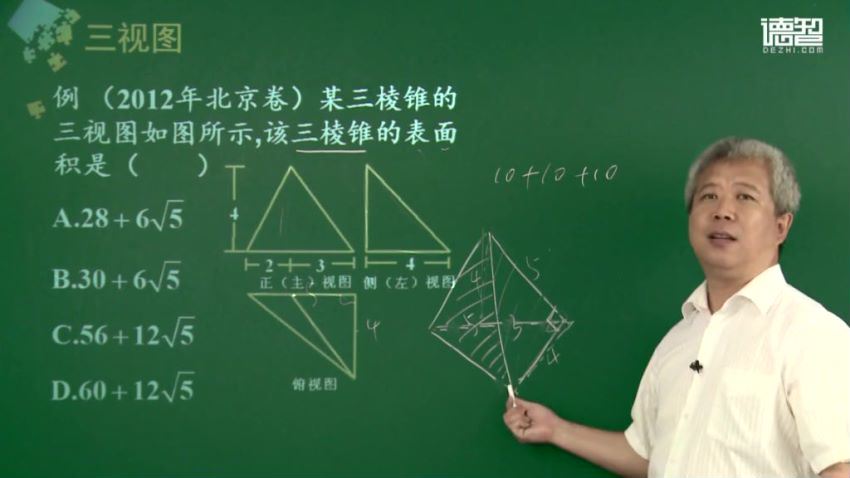 三视图
德智
DEZHI.COM
例 （2012年北京卷）某三棱锥的
三视图如图所示,该三棱锥的表面
积是（ ）
10+10+10
A.28+6√5
B.30+6√5
C.56+12√5
D.60+12√5
4
2 3 4
正（主）视图 侧（左）视图
4
俯视图
4 5
5 3
4